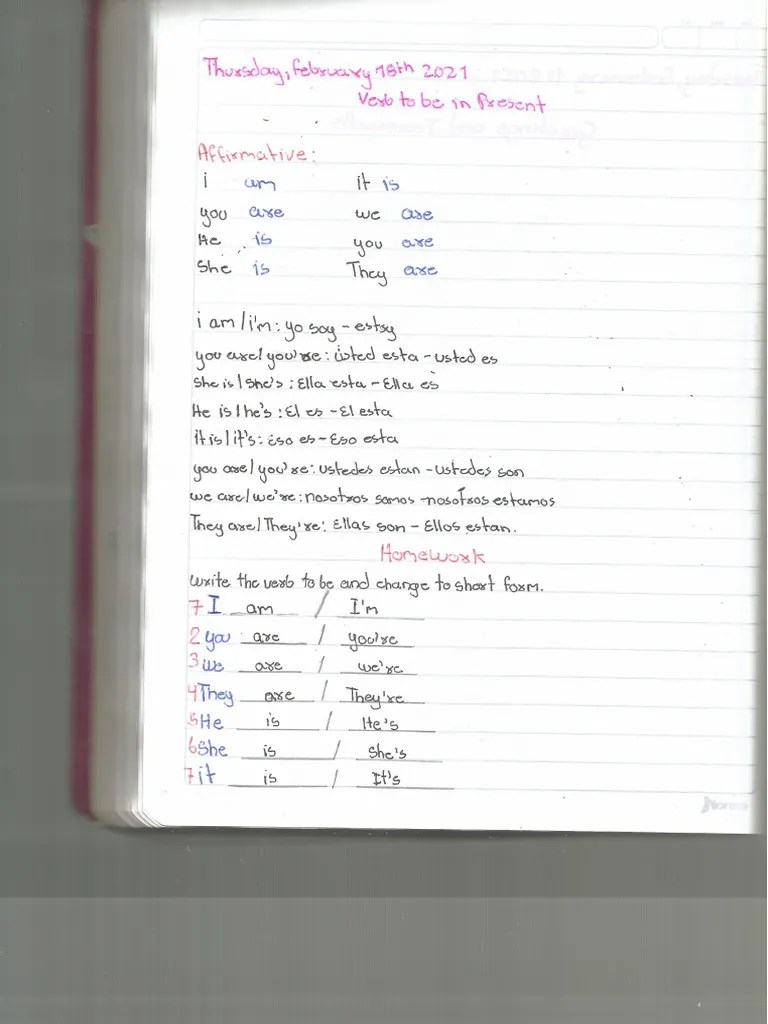 Thursday, february 18th 2021
Verb to be in Present
Affirmative:
i am it is
you are we are
He is you are
She is They are
i am/i'm: yo soy - estoy
you are/you're: usted esta - usted es
She is/She's: Ella esta - Ella es
He is/he's: El es - El esta
It is/it's: Eso es - Eso esta
you are/you're: ustedes estan - ustedes son
we are/we're: nosotros somos - nosotros estamos
They are/They're: Ellas son - Ellos estan.
Homework
Write the verb to be and change to short form.
1 I am / I'm
2 you are / you're
3 we are / we're
4 They are / They're
5 He is / He's
6 She is / She's
7 it is / It's
Norma